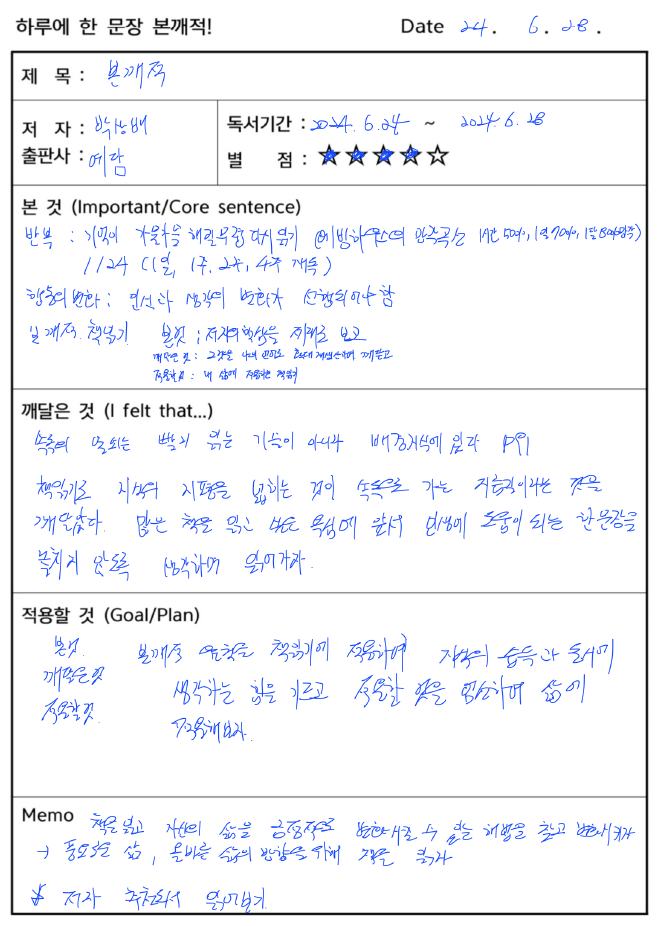 하루에 한 문장 본깨적! Date 24. 6. 28.
제 목 : 본깨적
저 자 : 박상배
출판사 : 예담
독서기간 : 2024. 6. 24 ~ 2024. 6. 28
별 점 : ★★★★☆
본 것 (Important/Core sentence)
반복 : 기억이 가물가물 해질무렵 다시읽기 (에빙하우스의 망각곡선 1시간 50%, 1일 70%, 1달 80%망각)
1124 (1일, 1주, 2주, 4주 계속)
행동의 변화 : 인식과 생각의 변화가 선행되어야 함
본깨적 책읽기 본것 : 저자의 핵심을 제대로 보고
깨달은 것 : 그것을 나의 언어로 확대 재생산하여 깨닫고
적용할것 : 내 삶에 적용하는 책읽기
깨달은 것 (I felt that...)
속독의 원리는 빨리 읽는 기술이 아니라 배경지식에 있다 P91
책읽기로 지식의 지평을 넓히는 것이 속독으로 가는 지름길이라는 것을
깨달았다. 많은 책을 읽고 싶은 욕심에 앞서 인생에 도움이 되는 한문장을
놓치지 않도록 생각하며 읽어가자.
적용할 것 (Goal/Plan)
본것. 본깨적 책읽기에 적용하여 지식의 습득과 동시에
깨달은것 생각하는 힘을 기르고 적용할 것을 하여 삶에
적용할것. 적용해보자.
Memo 책을 읽고 자신의 삶을 긍정적으로 변화시킬 수 있는 해법을 찾고 변화시키자
→ 풍요로운 삶, 올바른 삶의 방향을 위해 책을 읽자
* 저자 추천도서 읽어보기